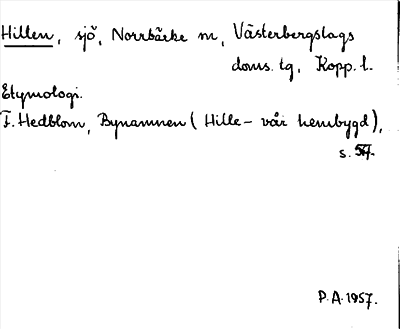 Hillen, sjö, Norrbärke sn, Västerbergslags
doms. tg, Kopp. l.
Etymologi.
F. Hedblom, Bynamnen (Hille – vår hembygd),
s. 57.
P.A. 1957.